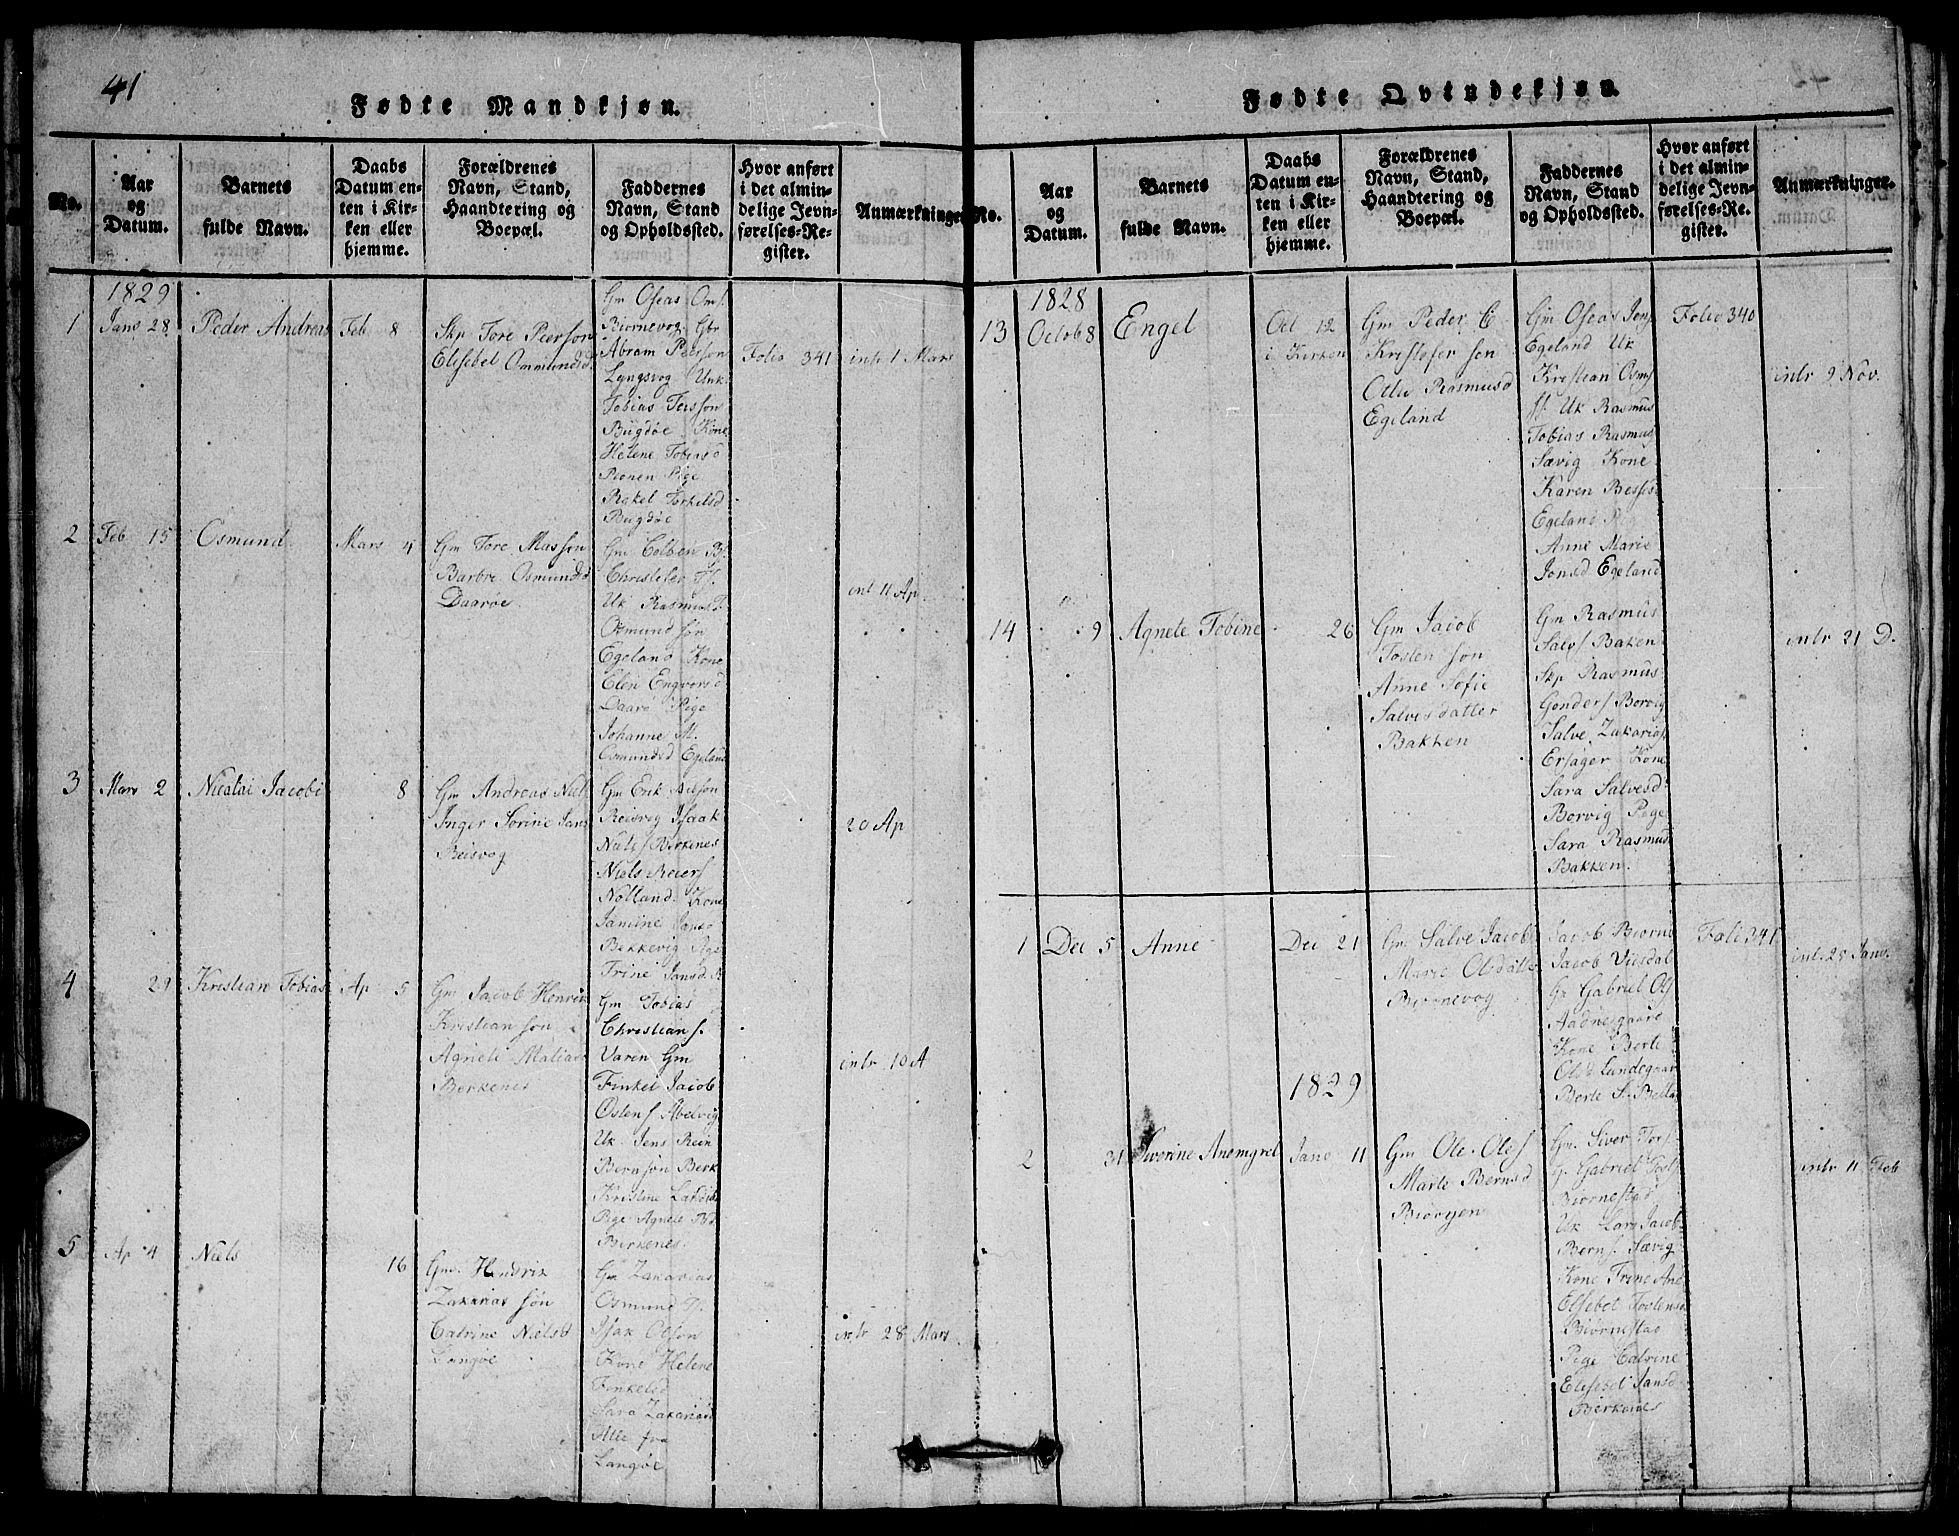 41
Fødte Mandkjøn.
No.
Aar
og
Datum.
Barnets
fulde Navn.
Daabs
Datum en-
ten i Kir-
ken eller
hjemme.
Forældrenes
Navn, Stand,
Haandtering og
Boepæl.
Faddernes
Navn, Stand
og Opholdssted.
Hvor anført
i det almin-
delige Jevn-
førelses-Re-
gister.
Anmærkninger
1829
1 Jans 28
Peder Andreas
Feb 8
Skp Tore Peerson
Elisebet Ommundsd
Gm Oseas Oms.
Biornevog Gbr
Abram Peerson
Lyngsvog Unk.
Tobias Torsson
Bugdøe Kone
Helene Tobiasd
Ronen Pige
Rakel Torkelsd
Bugdøe
Folio 341
intr 1 Mars
2 Feb 15
Osmund
Mars 4
Gm Tore Masson
Barbro Osmundsd
Daarøe
Gm Colben
Christofer
Uk Rasmus T.
Osmund søn
Egeland Kone
Elen Engvorsd
Daarø Pige
Johanne M.
Osmundsd Egeland
int 11 Ap.
3 Mars 2
Nicolai Jacobi
8
Gm Andreas Niels
Inger Sorine Jans
Reisvog
Gm Erik
Reisvog Isaak
Niels Birkenes
Niels Reiers
Nolland. Kone
Jansd
Bekkevig Pige
Trine Jansd.
20 Ap
4 29
Kristian Tobias
Ap 5
Gm Jacob Henrik
Kristian søn
Agnete
Berkenes
Gm Tobias
Christians.
Varen Gm
Finkel Jacob
Ostens Abelvig
Uk. Jens Rein
Bernsøn Berk
Kristine
Pige Agnete
Birkenes.
intr 10 A
5 Ap 4
Niels
16
Gm. Hendrik
Zakarias søn
Catrine Nielsd
Langøe
Gm Zakarias
Osmund
Isak Olson
Kone Helene
Finkelsd
Sara Zakariasd
Alle fra
Langøe
intr 28 Mars
Fødte Qvindekjøn.
No.
Aar
og
Datum.
Barnets
fulde Navn.
Daabs
Datum en-
ten i Kir-
ken eller
hjemme.
Forældrenes
Navn, Stand,
Haandtering og
Boepæl.
Faddernes
Navn, Stand
og Opholdssted.
Hvor anført
i det almin-
delige Jevn-
førelses-Re-
gister.
Anmærkninger.
1828
13 Octob 8
Engel
Oct 12
i Kirken
Gm Peder C
Kristofer søn
Rasmusd
Egeland
Gm Oseas Jens
Egeland Uk
Kristian Osms
Uk Rasmus
Tobias Rasmus
Sævig Kone
Karen
Egeland Pig
Anne Marie
Jonsd Egeland
Folio 340
intr 9 Nov.
14 9
Agnete Tobine
26
Gm Jacob
Tosten søn
Anne Sofie
Salvesdatter
Bakken
Gm Rasmus
Salvs Baken
Skp Rasmus
Gonders Borvig
Salve Zakarias.
Ersager Kone
Sara Salvesd
Borvig Pige
Sara Rasmusd
Bakken.
intr 21 D.
1 Dec 5
Anne
Dec 21
Gm Salve Jacobs
Marie Olsdatter
Biornevog
Jacob Biorne
Jacob
Gabriel Ols
Aadnesgaard
Kone Berte
Olsd Lundegaar
Berte S.
Folio 341
intr 25 Janv.
1829
2 31
Siverine Anemgret
Jano 11
Gm Ole Oles
Marte Bernsd
Gm. Siver Tors.
Gabriel Tosts
Biornestad
Uk Lars Jacob
Berns. Sævig
Kone Trine And
Elsebet Tostensd
Biørnestad
Pige Catrine
Elisebet Jansd
Berkenes
intr 11 Feb